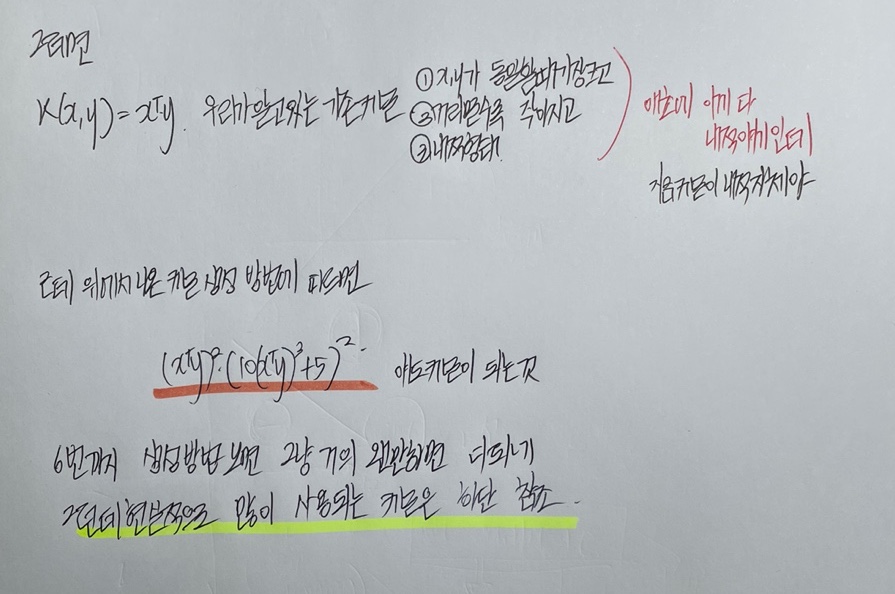 그러면
K(x,y) = xᵀy. 우리가 알고있는 기존커널
① x,y가 동일할때가장크고
③ 거리멀수록 작아지고
② 내적형태.
애초에 아까 다
내적얘기인데
지금커널이 내적자체야
근데 위에서나온 커널 생성 방법에 따르면
(xᵀy)²·(10(xᵀy)³+5)⁻². 얘도커널이 되는것
6번까지 생성방법 보면 그냥 거의 왠만하면 다되네
그런데 현실적으로 많이 사용되는 커널은 하단 참조.